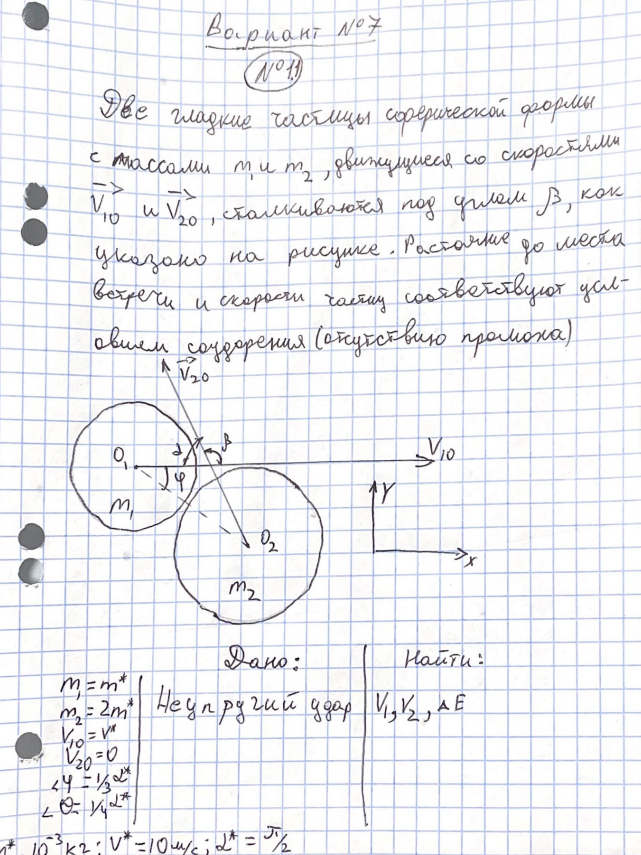 Вариант №7
№1.1
Две гладкие частицы сферической формы
с массами m₁ и m₂, движущиеся со скоростями
V₁₀ и V₂₀, сталкиваются под углом β, как
указано на рисунке. Растояние до места
встречи и скорости частиц соответствуют усл-
овием соударения (отсутствию промаха)
V₂₀
O₁ α β V₁₀
φ
m₁
Y
O₂
X
m₂
Дано: Найти:
m₁ = m*
Неупругий удар V₁, V₂, ΔE
m₂ = 2m*
V₁₀ = V*
V₂₀ = 0
∠φ = 1/3 α*
∠θ = 1/4 α*
m* 10⁻³ кг; V* = 10 м/с; α* = π/2